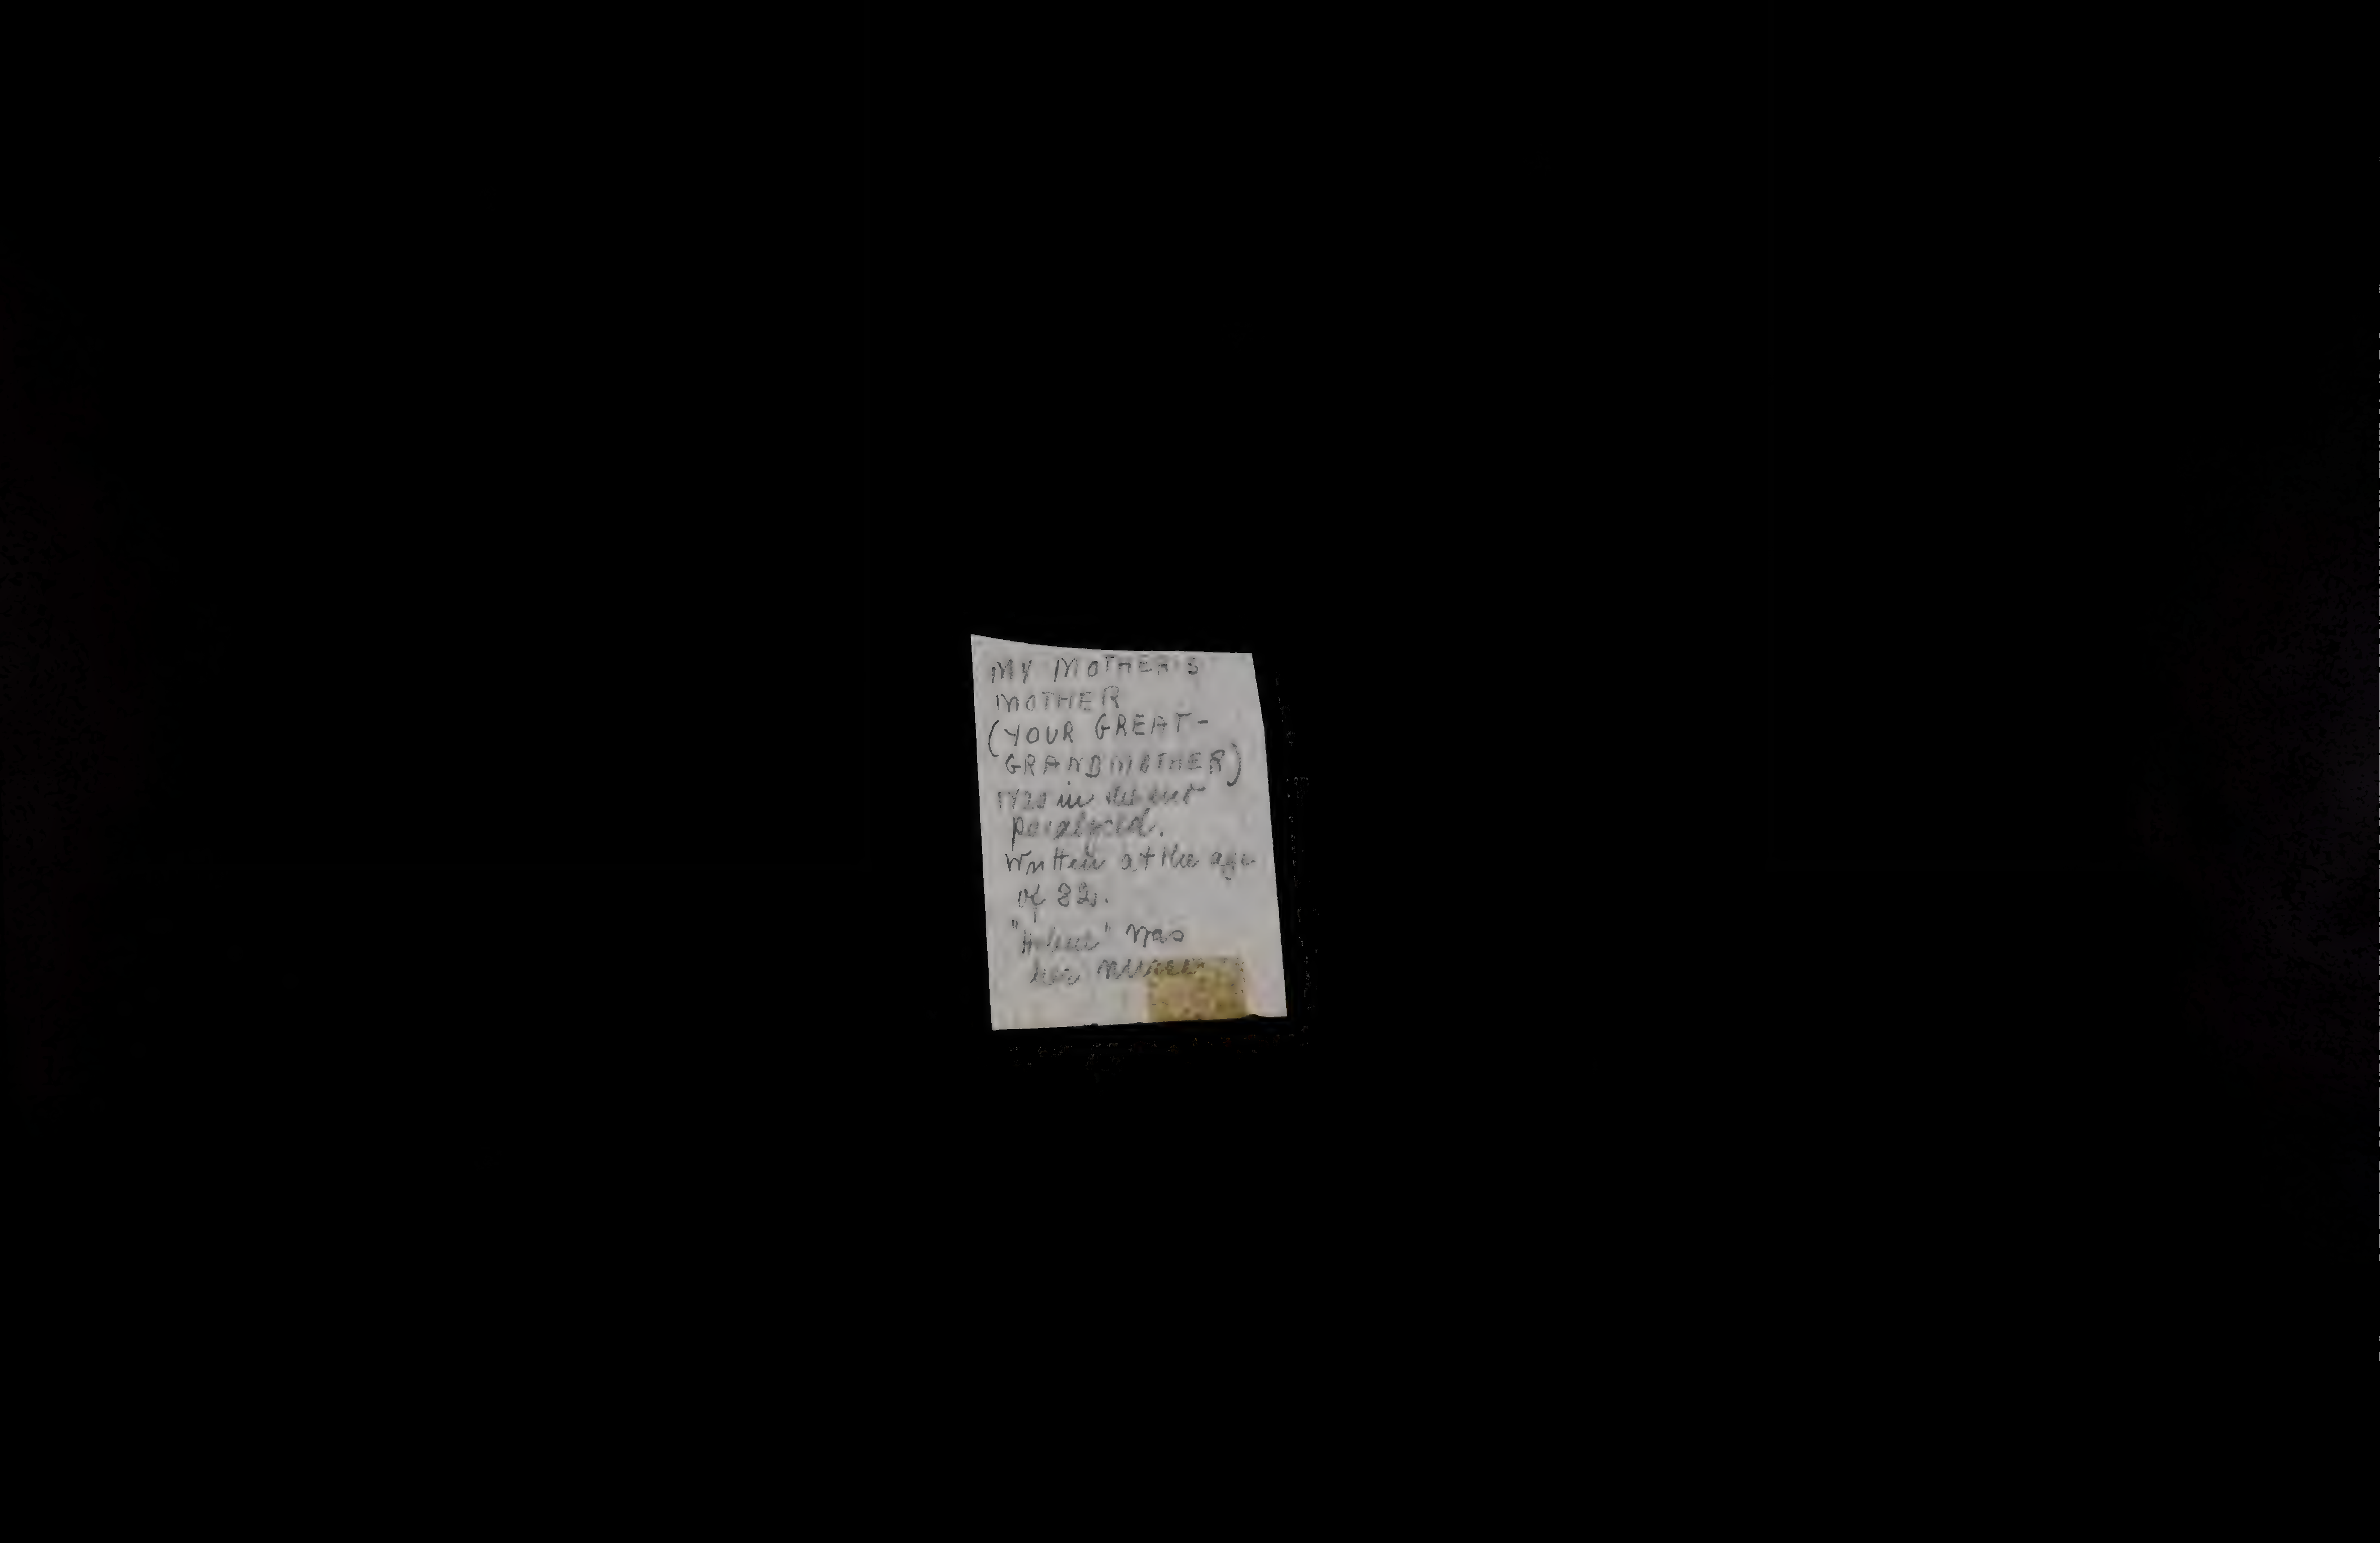 MY MOTHER'S
MOTHER
(YOUR GREAT-
GRANDMOTHER)
was in
paralyzed.
Written at the age
of 82.
was
her nurse